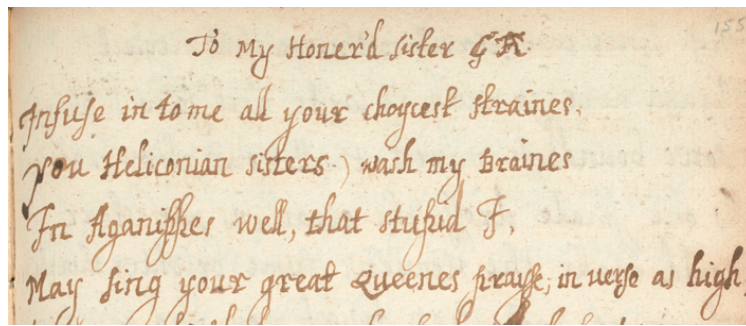 155
To My Honer'd sister GA
Infuse in to me all your choycest straines,
you Heliconian sisters) wash my Braines
In Aganippes well, that stupid I,
May sing your great Queenes prayse, in verse as high